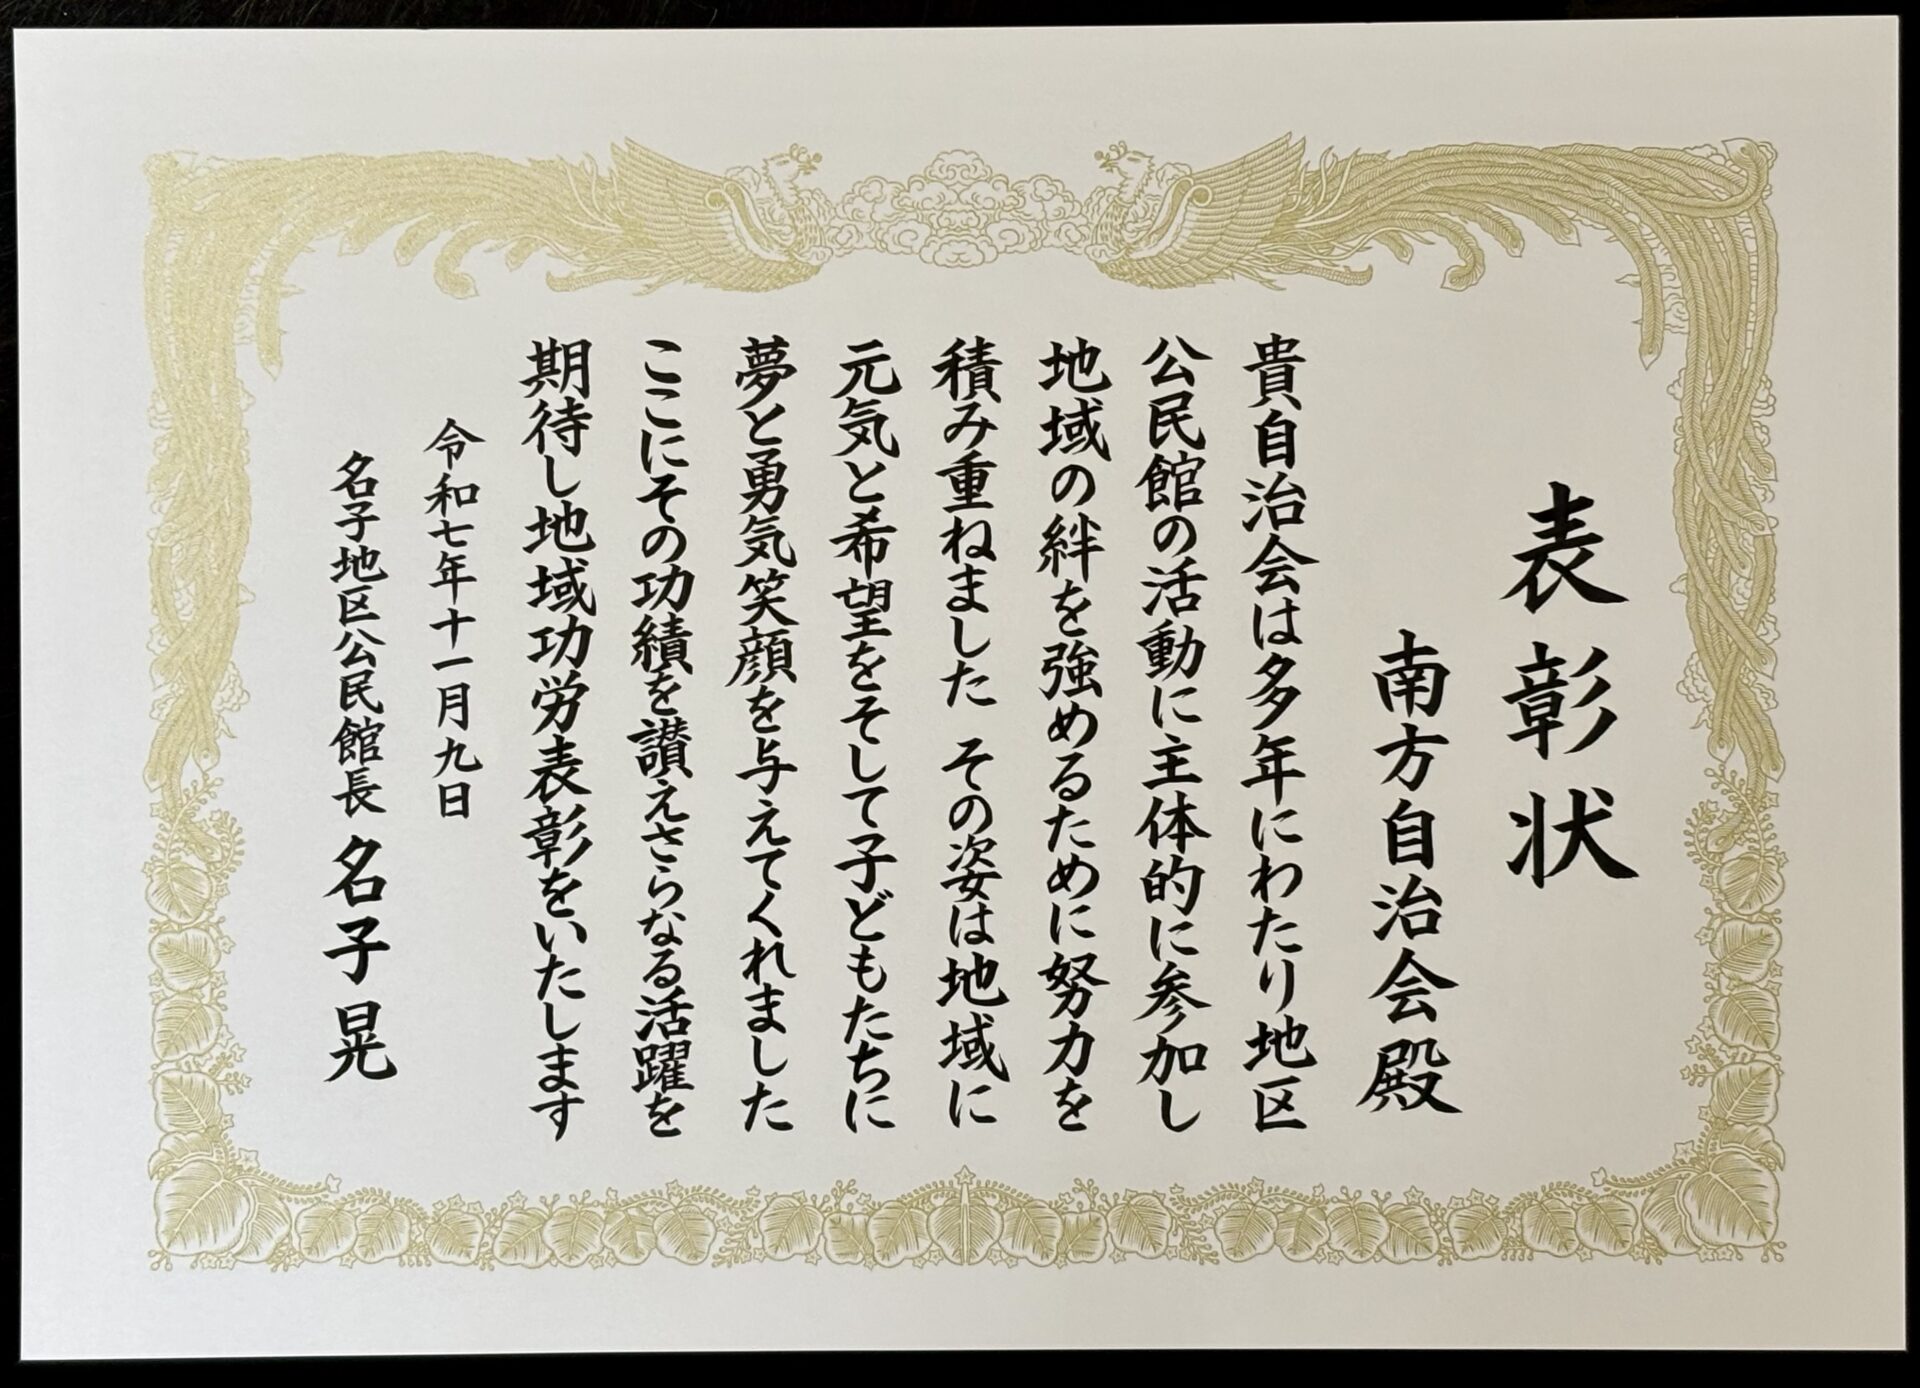 表彰状
南方自治会殿
貴自治会は多年にわたり地区
公民館の活動に主体的に参加し
地域の絆を強めるために努力を
積み重ねました その姿は地域に
元気と希望をそして子どもたちに
夢と勇気笑顔を与えてくれました
ここにその功績を讃えさらなる活躍を
期待し地域功労表彰をいたします
令和七年十一月九日
名子地区公民館長 名子晃